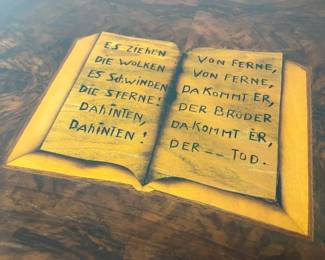 ES ZIEHEN
DIE WOLKEN
ES SCHWINDEN
DIE STERNE!
DAHINTEN,
DAHINTEN!
VON FERNE,
VON FERNE,
DA KOMMT ER,
DER BRÜDER
DA KOMMT ER,
DER -- TOD.